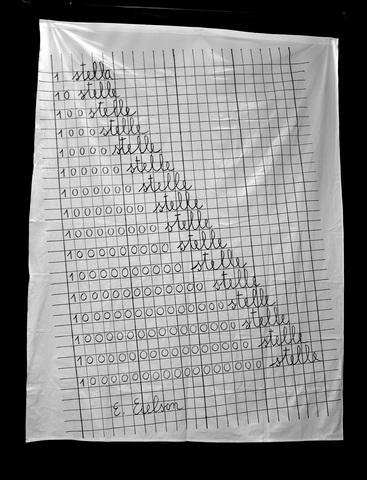 1 stella
10 stelle
100 stelle
1000 stelle
10000 stelle
100000 stelle
1000000 stelle
10000000 stelle
100000000 stelle
1000000000 stelle
10000000000 stelle
100000000000 stelle
1000000000000 stelle
10000000000000 stelle
100000000000000 stelle
1000000000000000 stelle
E. Eielson